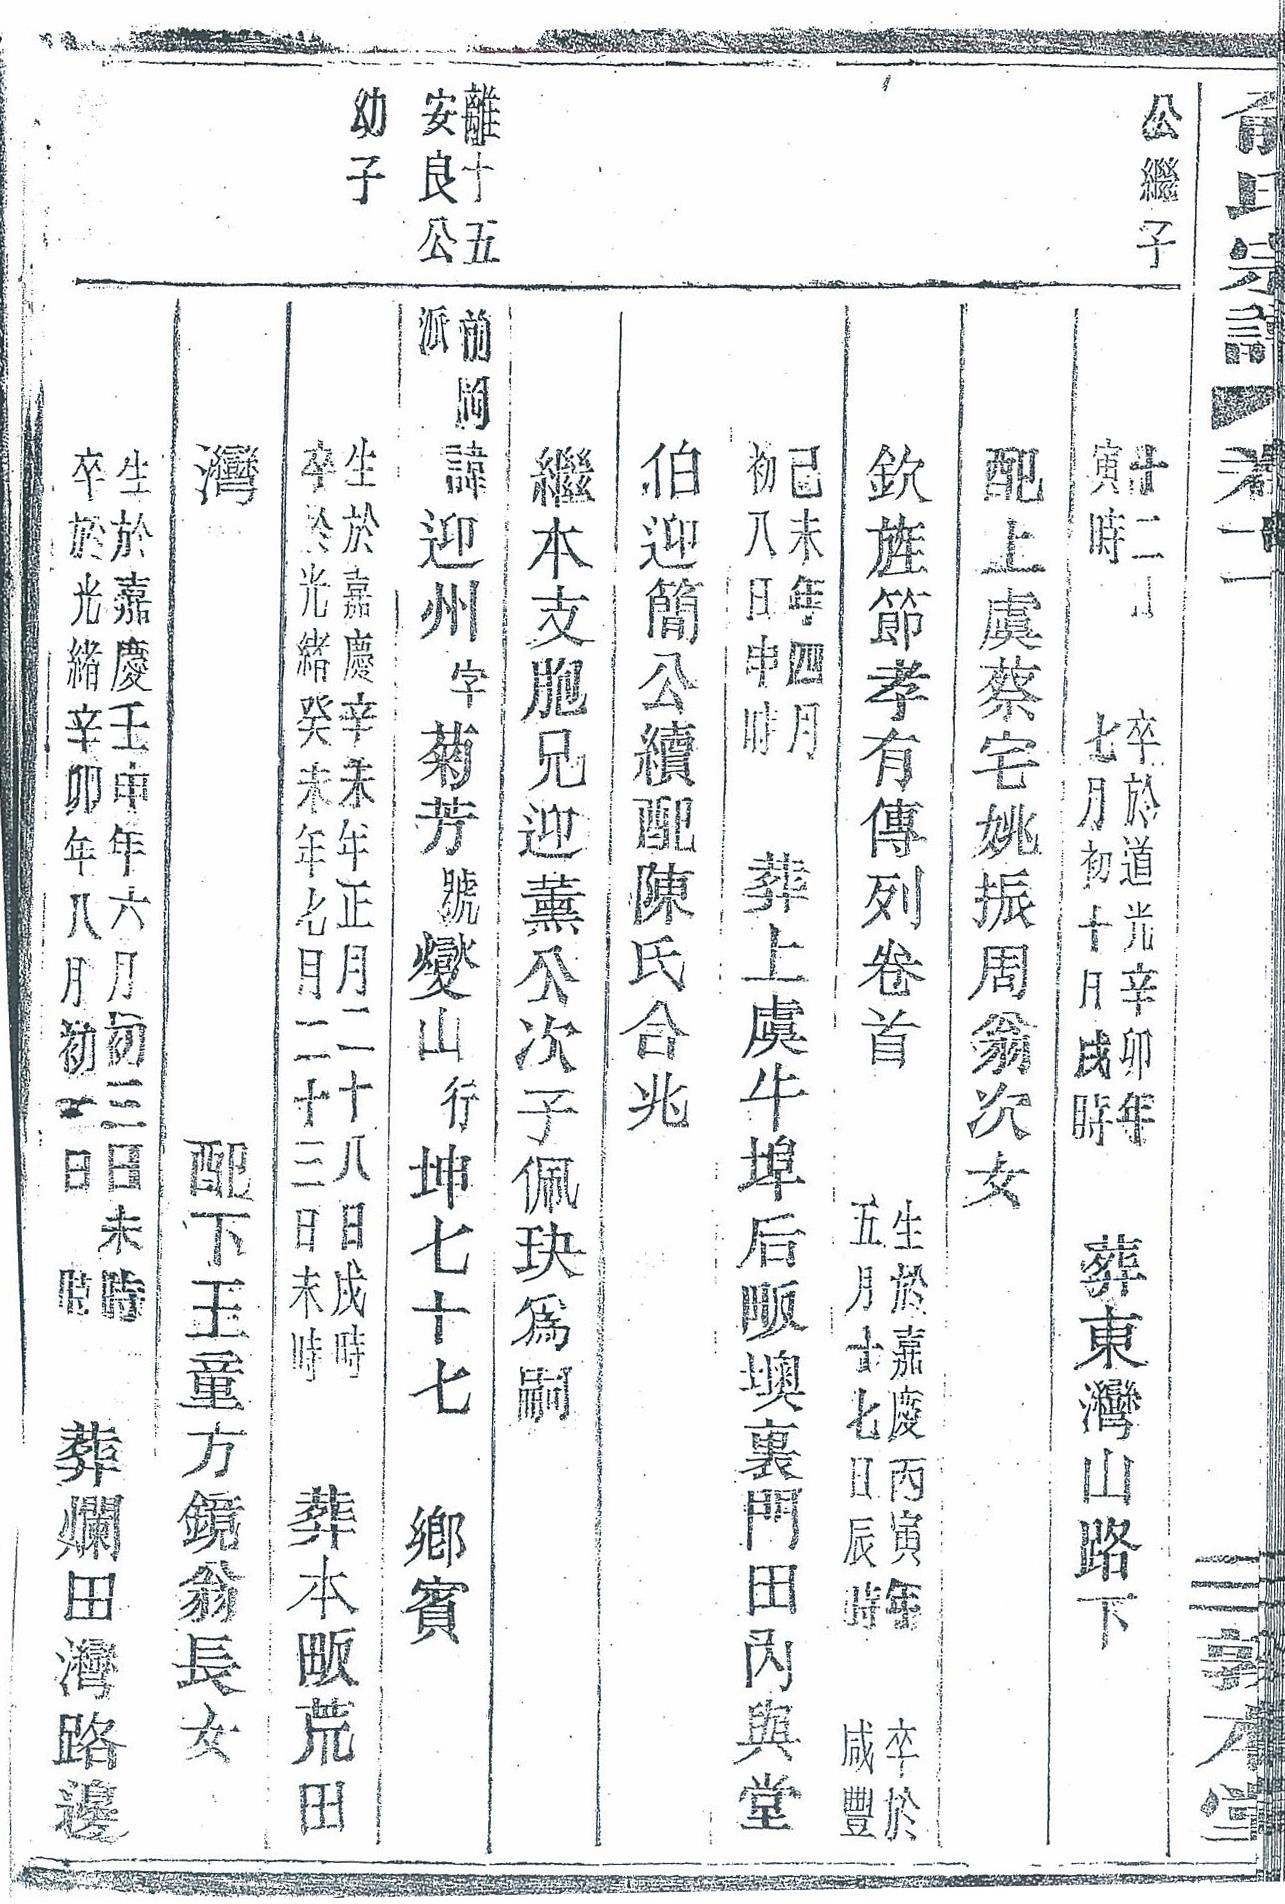 俞氏宗譜 卷十一 敦本堂
公繼子
十二月
寅時
卒於道光辛卯年
七月初十日戌時
葬東灣山路下
配上虞蔡宅姚振周翁次女
欽旌節孝有傳列卷首
生於嘉慶丙寅年
五月十七日辰時
卒於
咸豐
己未年四月
初八日申時
葬上虞牛埠后畈墺裏門田內與堂
伯迎簡公續配陳氏合兆
繼本支胞兄迎薰公次子佩玦爲嗣
離十五
安良公
幼子
前岡
派
諱迎州字菊芳號燮山行坤七十七 鄉賓
生於嘉慶辛未年正月二十八日戌時
卒於光緒癸未年七月二十三日未時
葬本畈荒田
灣 配下王童方鏡翁長女
生於嘉慶壬申年六月初三日未時
卒於光緒辛卯年八月初一日 時
葬爛田灣路邊